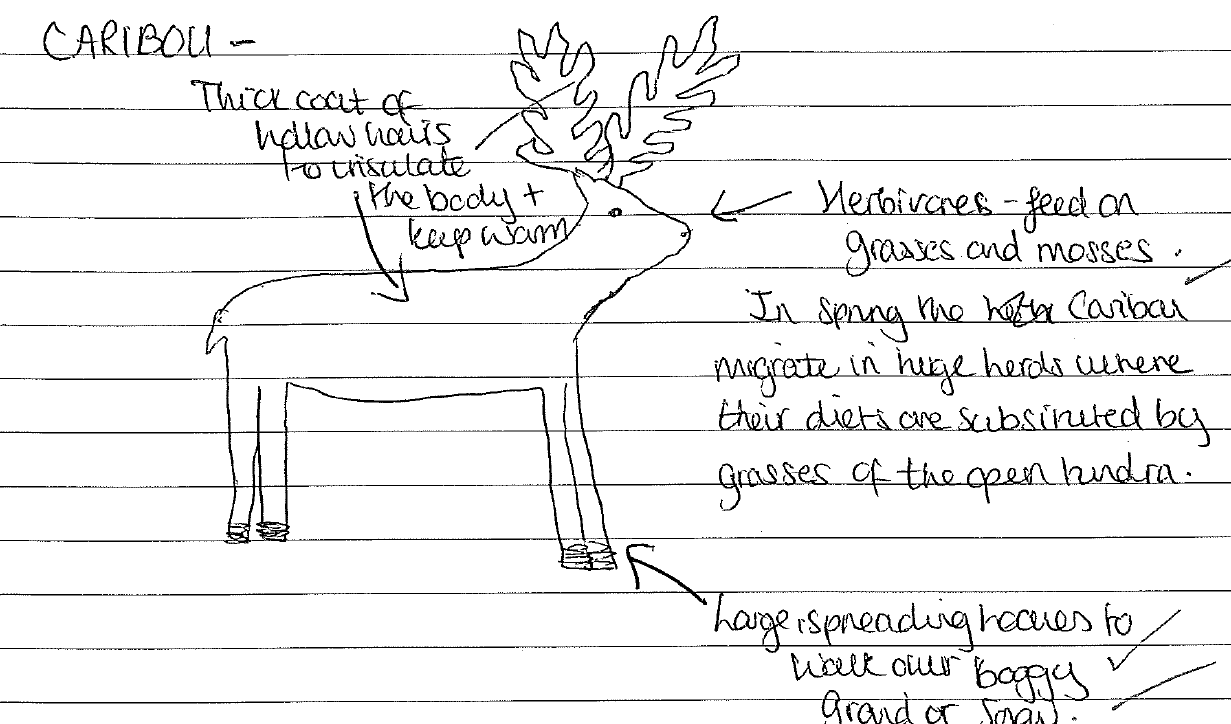 CARIBOU -
Thick coat of
hollow hairs
to insulate
the body +
keep warm
Herbivores - feed on
grasses and mosses.
In spring the Caribou
migrate in huge herds where
their diets are subsituted by
grasses of the open tundra.
Large, spreading hooves to
walk over boggy
ground or snow.